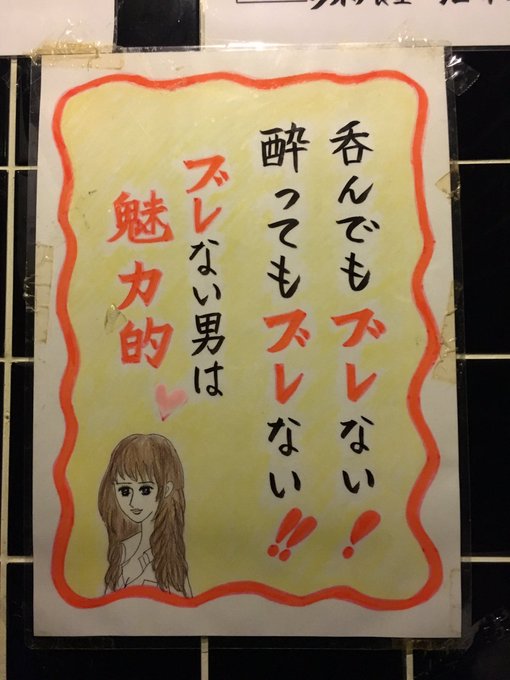 呑んでもズレない!
酔ってもズレない!!
ズレない男は
魅力的